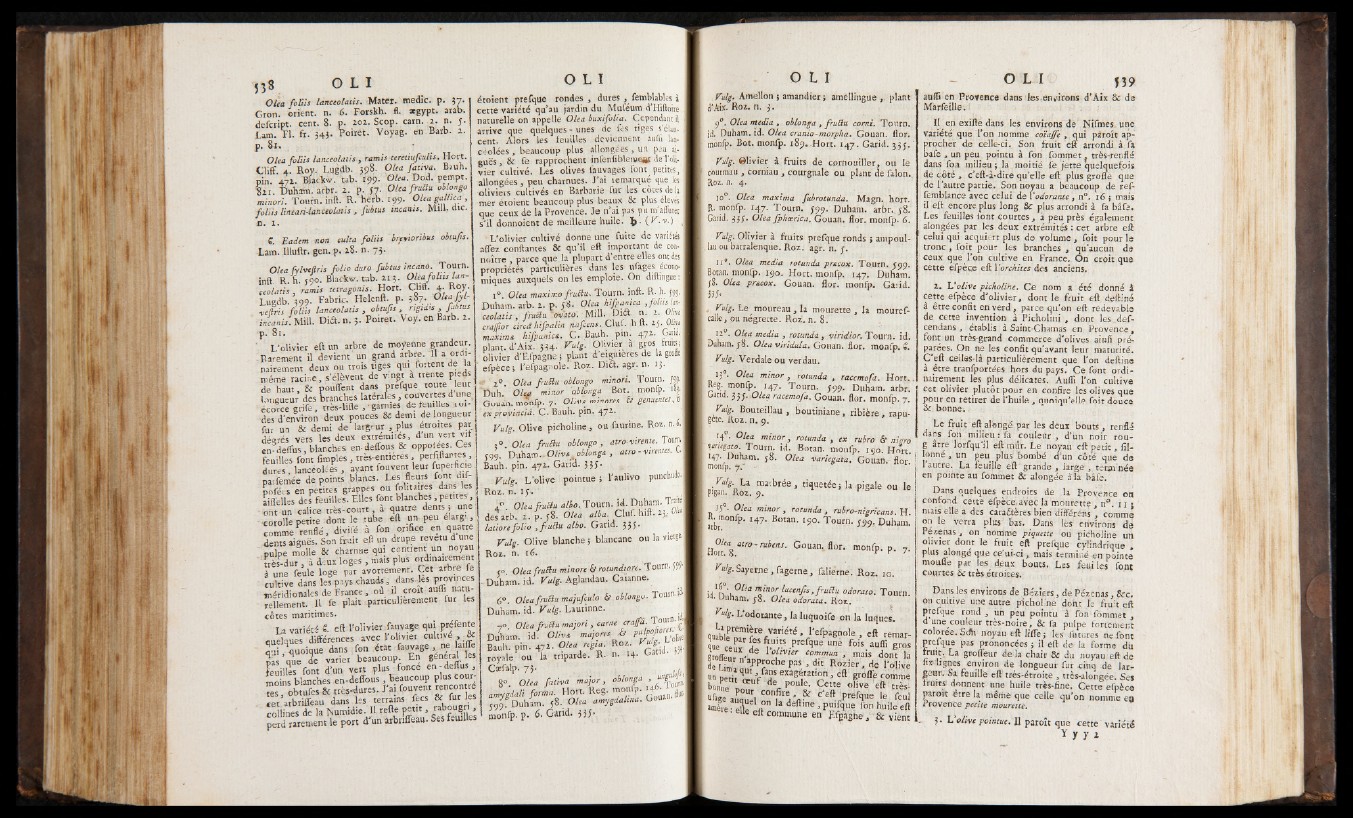 538 O L I
Olea foliis lanceolatis. Mater. medic. p. 37.
Gron. orient. n. 6. Forskh. fl. ægypt. arab.
descript. cent. 8. p. 202. Scop. carn. 2. n. 5.
Lam. Fl. fr. 343. Poiret. Voyag. en Barb. 2.
p. 81.
Olea foliis lanceolatis, ramis teretiusculis. Hort.
Cliff. 4. Roy. Lugdb. 398. Olea sativa. Bauh.
pin. 472. Blackw. tab. 199. Olea. Dod. pempt.
821. Duham. arbr. 2. p. 57. Olea fructu oblongo
minori. Tourn. inst. R. herb. 199. Olea gallica,
foliis lineari-lanceolatis, subtus incanis. Mill. dic.
n. 1.
ϐ. Eadem non culta foliis brevioribus obtusis.
Lam. Illustr. gen. p. 28. n. 73.
Olea sylvestris folio duro subtus incano. Tourn.
inst. R. h. 590. Blackw. tab. 213. Olea foliis lan-
ceolatis, ramis tetragonis. Hort. Cliff. 4. Roy.
Lugdb. 399. Fabric. Helenst. p. 387. Olea syl-
vestris foliis lanceolatis, obtusis, rigidis, subtus
incanis. Mill. Dict. n. 3. Poiret. Voy. en Barb. 2.
p. 81.
L'olivier est un arbre de moyenne grandeur.
Rarement il devient un grand arbre. Il a ordi-
nairement deux ou trois tiges qui sortent de la
même racine, s'élèvent de vingt à trente pieds
de haut, & poussent dans presque toute leur
longueur des branches latérales, couvertes d'une
écorce grise, très-lisse, garnies de feuilles roi-
des d'environ deux pouces & demi de longueur
sur un & demi de largeur, plus étroites par
dégrés vers les deux extrémités, d'un vert vif
en-dessus, blanches en-dessous & opposées. Ces
feuilles sont simples, très-entières, persistantes,
dures, lancéolées, ayant souvent leur superficie
parsemée de points blancs. Les fleurs sont dis-
posées en petites grappes ou solitaires dans les
aisselles des feuilles. Elles sont blanches, petites,
ont un calice très-court, à quatre dents; une
corolle petite dont le tube est un peu élargi,
comme renflé, divisé à son orifice en quatre
dents aiguës. Son fruit est un drupe revêtu d'une
pulpe molle & charnue qui contient un noyau
très-dur, à deux loges, mais plus ordinairement
à une seule loge par avortement. Cet arbre se
cultive dans les pays chauds; dans les provinces
méridionales de France, où il croît aussi natu-
rellement. Il se plaît particulièrement sur les
côtes maritimes.
La variété ϐ. est l'olivier sauvage qui présente
quelques différences avec l'olivier cultivé, &
qui, quoique dans son état sauvage, ne laisse
pas que de varier beaucoup. En général les
feuilles sont d'un vert plus foncé en-dessus,
moins blanches en-dessous, beaucoup plus cour-
tes, obtuses & très-dures. J'ai souvent rencontré
cet arbrisseau dans les terrains secs & sur les
collines de la Numidie. Il reste petit, rabougri,
perd rarement le port d'un arbrisseau. Ses feuilles
O L I
étoient presque rondes, dures, semblables à
cette variété qu'au jardin du Muséum d'Histoire
naturelle on appelle Olea buxifolia. Cependant il
arrive que quelques-unes de ses tiges s'élan-
cent. Alors les feuilles deviennent aussi lan-
céolées, beaucoup plus allongées, un peu ai-
guës, & se rapprochent insensiblement de l'oli-
vier cultivé. Les olives sauvages sont petites,
allongées, peu charnues. J'ai remarqué que les
oliviers cultivés en Barbarie sur les côtes de la
mer étoient beaucoup plus beaux & plus élevés
que ceux de la Provence. Je n'ai pas pu m'assurer
s'il donnoient de meilleure huile. ♄. (V. v.)
L'olivier cultivé donne une suite de variétés
assez constantes & qu'il est important de con-
noitre, parce que la plupart d'entre elles ont des
propriétés particulières dans les usages écono-
miques auxquels on les emploie. On distingue:
1°. Olea maximo fructu. Tourn. inst. R. h. 599.
Duham. arb. 2. p. 58. Olea hispanica, foliis lan-
ceolatis, fructu ovato. Mill. Dict. n. 2. Oliva
crassior circà hispalim nascens. Clus. hist. 25. Oliva
maxima hispanica. C. Bauh. pin. 472. Garid.
plant. d'Aix. 334. Vulg. Olivier à gros fruits;
olivier d'Espagne; plant d'eiguières de la grosse
espèce; l'espagnole. Roz. Dict. agr. n. 13.
2°. Olea fructu oblongo minori. Tourn. 599.
Duh. Olea minor oblonga. Bot. monsp. 189.
Gouan. monsp. 7. Olivæ minores & genuenses, &
ex provinciâ. C. Bauh. pin. 472.
Vulg. Olive picholine, ou saurine. Roz. n. 6.
3°. Olea fructu oblongo, atro-virente. Tourn.
599. Duham. Oliva oblonga, atro-virentes. C.
Bauh. pin. 472. Garid. 335.
Vulg. L'olive pointue; l'aulivo punchudo.
Roz. n. 15.
4°. Olea fructu albo. Tourn. id. Duham. Traité
des arb. 2. p. 58. Olea alba. Clus. hist. 25. Olea
latiore folio, fructu albo. Garid. 335.
Vulg. Olive blanche; blancane ou la vierge.
Roz. n. 16.
5°. Olea fructu minore & rotundiore. Tourn. 599.
Duham. id. Vulg. Aglandau. Caianne.
6°. Olea fructu majusculo & oblongo. Tourn. id.
Duham. id. Vulg. Laurinne.
7°. Olea fructu majori, carne crassâ. Tourn. id.
Duham. id. Olivæ majores & pulposiores. C.
Bauh. pin. 472. Olea regia. Roz. Vulg. L'olive
royale ou la triparde. R. n. 14. Garid. 334.
Cæsalp. 73.
8°. Olea sativa major, oblonga, angulosa,
amygdali forma. Hort. Reg. monsp. 146. Tourn.
599. Duham. 58. Olea amygdalina. Gouan. flor.
monsp. p. 6. Garid. 335.
O L I
Vulg. Amellon; amandier; amellingue, plant
d'Aix. Roz. n. 3.
9°. Olea media, oblonga, fructu corni. Tourn.
id. Duham. id. Olea crania-morpha. Gouan. flor.
monsp. Bot. monsp. 189. Hort. 147. Garid. 335.
Vulg. Olivier à fruits de cornouiller, ou le
courniau, corniau, courgnale ou plant de salon.
Roz. n. 4.
10°. Olea maxima subrotunda. Magn. hort.
R. monsp. 147. Tourn. 599. Duham. arbr. 58.
Garid. 335. Olea sphærica. Gouan. flor. monsp. 6.
Vulg. Olivier à fruits presque ronds; ampoul-
lau ou barralenque. Roz. agr. n. 5.
11°. Olea media rotunda præcox. Tourn. 599.
Botan. monsp. 190. Hort. monsp. 147. Duham.
58. Olea præcox. Gouan. flor. monsp. Garid.
335.
Vulg. Le moureau, la mourette, la mouref-
calle, ou négrette. Roz. n. 8.
12°. Olea media, rotunda, viridior. Tourn. id.
Duham. 58. Olea viridula. Gouan. flor. monsp. 6.
Vulg. Verdale ou verdau.
13°. Olea minor, rotunda, racemosa. Hort.
Reg. monsp. 147. Tourn. 599. Duham. arbr.
Garid. 335. Olea racemosa. Gouan. flor. monsp. 7.
Vulg. Bouteillau, boutiniane, ribière, rapu-
gète. Roz. n. 9.
14°. Olea minor, rotunda, ex rubro & nigro
variegata. Tourn. id. Botan. monsp. 190. Hort.
147. Duham. 58. Olea variegata. Gouan. flor.
monsp. 7.
Vulg. La marbrée, tiquetée; la pigale ou le
pigau. Roz. 9.
15°. Olea minor, rotunda, rubro-nigricans. H.
R. monsp. 147. Botan. 190. Tourn. 599. Duham.
arbr.
Olea atro-rubens. Gouan. flor. monsp. p. 7.
Hort. 8.
Vulg. Sayerne, sagerne, salierne. Roz. 10.
16°. Olea minor lucensis, fructu odorato. Tourn.
id. Duham. 58. Olea odorata. Roz.
Vulg. L'odorante, la luquoise on la luques.
La première variété, l'espagnole, est remar-
quable par ses fruits presque une fois aussi gros
que ceux de l'olivier commun, mais dont la
grosseur n'approche pas, dit Rozier, de l'olive
de Lima qui, sans exagération, est grosse comme
un petit œuf de poule. Cette olive est très-
bonne pour confire, & c'est presque le seul
usage auquel on la destine, puisque son huile est
amère: elle est commune en Espagne, & vient
O L I 539
aussi en Provence dans les environs d'Aix & de
Marseille.
Il en existe dans les environs de Nismes une
variété que l'on nomme coïasse, qui paroît ap-
procher de celle-ci. Son fruit est arrondi à sa
base, un peu pointu à son sommet, très-renflé
dans son milieu; la moitié se jette quelquefois
de côté, c'est-à-dire qu'elle est plus grosse que
de l'autre partie. Son noyau a beaucoup de res-
semblance avec celui de l'odorante, n°. 16; mais
il est encore plus long & plus arrondi à sa bâse.
Les feuilles sont courtes, à peu près également
alongées par les deux extrémités: cet arbre est
celui qui acquiert plus de volume, soit pour le
tronc, soit pour les branches, qu'aucun de
ceux que l'on cultive en France. On croit que
cette espèce est l'orchites des anciens.
2. L'olive picholine. Ce nom a été donné à
cette espèce d'olivier, dont le fruit est destiné
à être confit en verd, parce qu'on est redevable
de cette invention à Picholini, dont les des-
cendans, établis à Saint-Chamas en Provence,
font un très-grand commerce d'olives ainsi pré-
parées. On ne les confit qu'avant leur maturité.
C'est celles-là particulièrement que l'on destine
à être transportées hors du pays. Ce sont ordi-
nairement les plus délicates. Aussi l'on cultive
cet olivier plutôt pour en confire les olives que
pour en retirer de l'huile, quoiqu'elle soit douce
& bonne.
Le fruit est alongé par les deux bouts, renflé
dans son milieu: sa couleur, d'un noir rou-
geâtre lorsqu'il est mûr. Le noyau est petit, sil-
lonné, un peu plus bombé d'un côté que de
l'autre. La feuille est grande, large, terminée
en pointe au sommet & alongée à la bâse.
Dans quelques endroits de la Provence on
confond cette espèce avec la mourette, n°. 11;
mais elle a des caractères bien différens, comme
on le verra plus bas. Dans les environs de
Pézenas, on nomme piquette ou picholine un
olivier dont le fruit est presque cylindrique,
plus alongé que celui-ci, mais terminé en pointe
mousse par les deux bouts. Les feuilles sont
courtes & très étroites.
Dans les environs de Béziers, de Pézenas, &c.
on cultive une autre picholine dont le fruit est
presque rond, un peu pointu à son sommet,
d'une couleur très-noire, & sa pulpe fortement
colorée. Son noyau est lisse; les sutures ne sont
presque pas prononcées; il est de la forme du
fruit. La grosseur de la chair & du noyau est de
six lignes environ de longueur sur cinq de lar-
geur. Sa feuille est très-étroite, très-alongée. Ses
fruits donnent une huile très-fine. Cette espèce
paroît être la même que celle qu'on nomme en
Provence petite mourette.
3. L'olive pointue. Il paroît que cette variété
Y y y 2